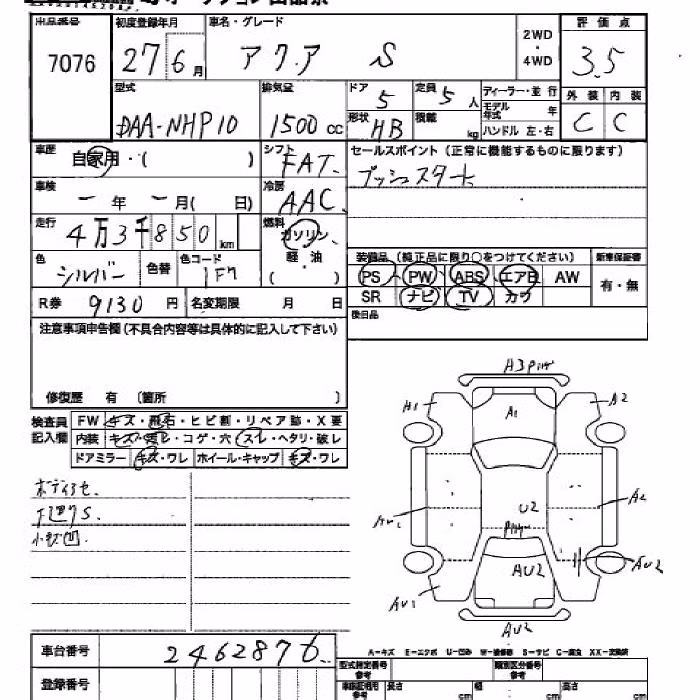 出品番号 初度登録年月 車名・グレード 2WD ・ 4WD 評価点
7076 27 6月 アクア S 3.5
型式 排気量 ドア 5 定員 5人 ディーラー・並行 外装 内装
DAA-NHP10 1500cc 形状 HB 積載 kg モデル年式 年 ハンドル 左・右 C C
車歴 自家用・( ) シフト FAT セールスポイント (正常に機能するものに限ります)
車検 ー年ー月( 日) 冷房 AAC プッシュスタート
走行 4万3千850km 燃料 ガソリン 軽油 ( )
色 シルバー 色替 色コード 1F7 装備品 (純正品に限り○をつけてください) 新車保証書
PS PW ABS エアB AW 有・無
R券 9130円 名変期限 月 日 SR ナビ TV カワ
注意事項申告欄(不具合内容等は具体的に記入して下さい) 後日品
修復歴 有 〔箇所 〕
検査員記入欄 FW キズ・飛石・ヒビ割・リペア跡・X要
内装 キズ・汚レ・コゲ・穴・スレ・ヘタリ・破レ
ドアミラー キズ・ワレ ホイール・キャップ キズ・ワレ
A1 A1 A2
U2 A2
AU2
AU1 AU2
A-キズ E-エクボ U-凹み W-補修跡 S-サビ C-腐食 XX-交換済
車台番号 2462876
登録番号 型式指定番号 参考 類別区分番号 参考
長さ cm 幅 cm 高さ cm